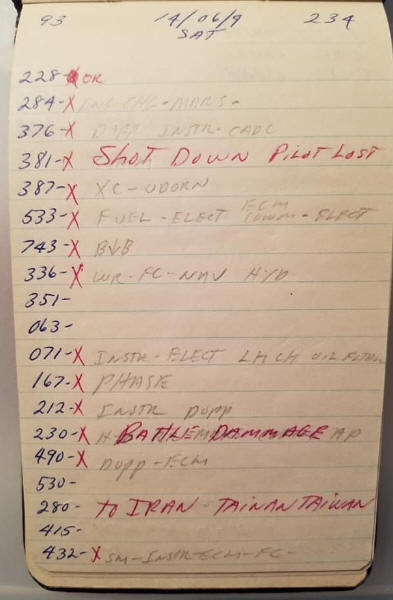 93 14/06/9 234
SAT
228-X OR
284-X ENG CHG-MARS-
376-X INSTR-CADC
381-X SHOT DOWN PILOT LOST
387-X XC-UDORN
533-X FUEL-ELECT ECM COMM-ELECT
743-X B&B
336-X WR-FC-NAV HYD
351-
063-
071-X INSTR-ELECT LH CH OIL
167-X PHASE
212-X INSTR DOPP
230-X BATTLE DAMMAGE AP
490-X DOPP-ECM
530-
280- TO IRAN-TAINAN TAIWAN
415-
432-X SM-INSTR-ECM-FC-